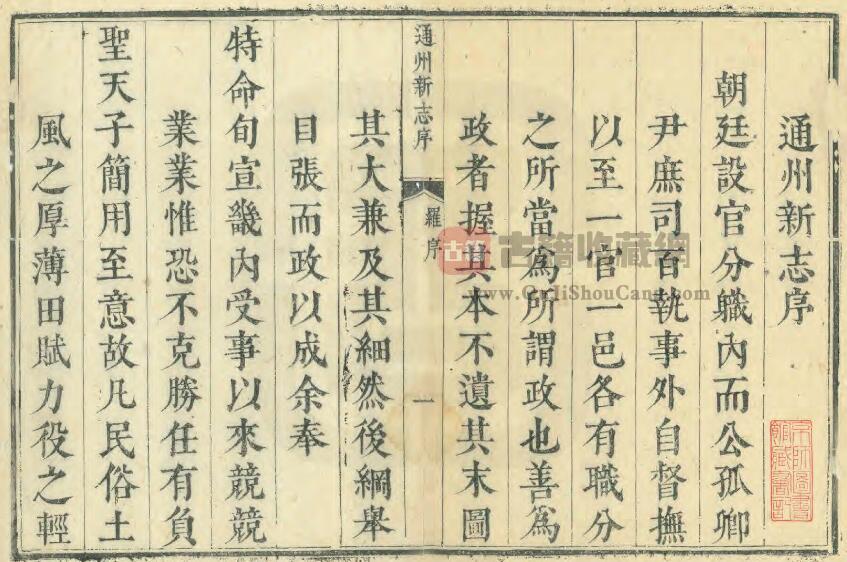 通州新志序
朝廷設官分職內而公孤卿
尹庶司百執事外自督撫
以至一官一邑各有職分
之所當爲所謂政也善爲
政者握其本不遺其末圖
通州新志序
羅序
一
其大兼及其細然後綱舉
目張而政以成余奉
特命旬宣畿內受事以來競競
業業惟恐不克勝任有負
聖天子簡用至意故凡民俗土
風之厚薄田賦力役之輕
京師圖書
館藏書記
古籍
古籍收藏網
www.GuJiShouCang.com